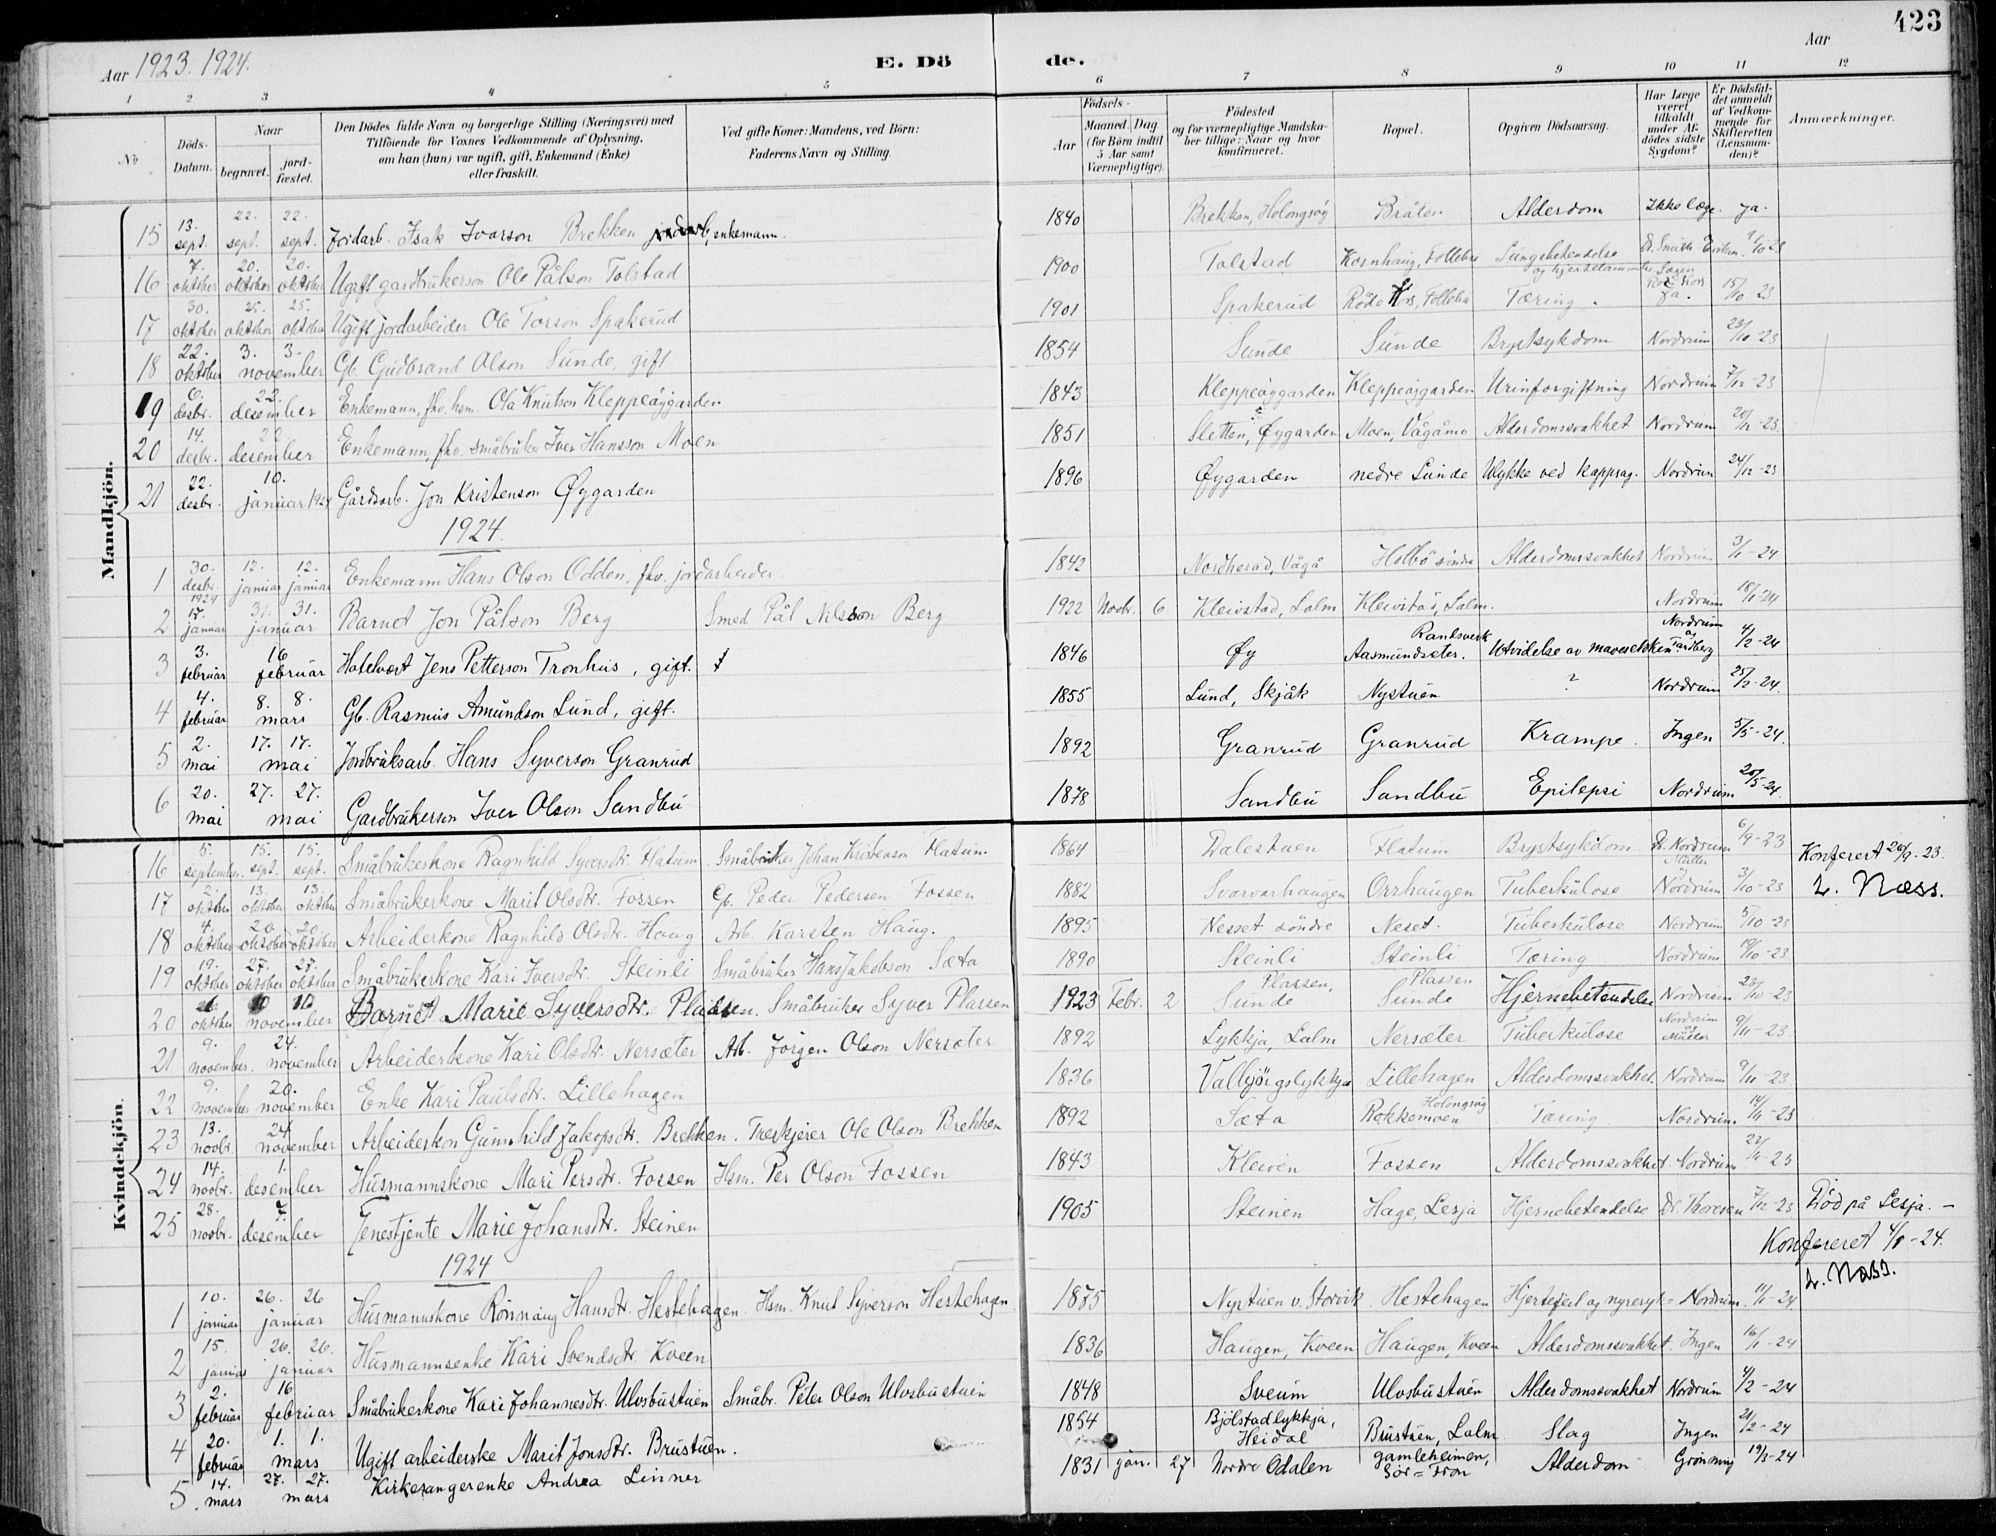 423
Aar 1923. 1924.
E. Dö de.
Aar
1 2 3 4 5 6 7 8 9 10 11 12
No
Döds-Datum.
Naar
begravet.
jord-fæstet.
Den Dödes fulde Navn og borgerlige Stilling (Næringsvei) med
Tilföiende for Voxnes Vedkommende af Oplysning,
om han (hun) var ugift, gift, Enkemand (Enke)
eller fraskilt.
Ved gifte Koner: Mandens, ved Börn:
Faderens Navn og Stilling.
Födsels-
Aar
Maaned. Dag
(for Börn indtil
5 Aar samt
Værnepligtige).
Födested
og for værnepligtige Mandska-
ber tillige: Naar og hvor
konfirmeret.
Bopæl.
Opgiven Dödsaarsag.
Har Læge
været
tilkaldt
under Af-
dödes sidste
Sygdom?
Er Dödsfal-
det anmeldt
af Vedkom-
mende for
Skifteretten
(Lensman-
den)?
Anmærkninger.
Mandkjön.
15 13. sept. 22. sept. 22. sept. Jordarb. Isak Ivarson Brekken, enkemann. 1840 Brekken, Holongsöy Bråten Alderdom Ikke læge. ja.
16 7. oktober 20. oktober 20. oktober Ugift gardbrukerson Ole Pålson Tolstad 1900 Tolstad Kornhaug, Follebu Lungebetendelse og hjertelammelse Dr. Smith 9/10 23
17 30. oktober 25. oktober 25. oktober Ugift jordarbeider Ole Torson Spakerud 1901 Spakerud Røde Kors, Follebu Tæring. ja. 15/10 23
18 22. oktober 3. 3. november Gb. Gudbrand Olson Sunde, gift 1854 Sunde Sunde Brystsykdom Nordrum 23/10-23
19 6. desbr. 22. desember Enkemann, fhv. hsm. Ola Knutson Kleppeöygarden 1843 Kleppeöygarden Kleppeöygarden Urinforgiftning Nordrum 7/12-23
20 14. desbr. 22 desember Enkemann, fhv. småbruker Iver Hansson Moen 1851 Sletten, Øygarden Moen, Vågåmo Alderdomssvakhet Nordrum 20/12-23
21 22. desbr. 10. januar 1924 Gårdsarb. Jon Kristenson Øygarden 1896 Øygarden nedre Sunde Ulykke ved kappsag. Nordrum 24/12-23
1924.
1 30. desbr. 12. januar 12. januar Enkemann Hans Olson Odden, fhv. jordarbeider. 1842 Nordherad, Vågå Holbö söndre Alderdomssvakhet Nordrum 3/1-24
2 1924 17. januar 31. 31. januar Barnet Jon Pålson Berg Smed Pål Nilsson Berg 1922 Novbr. 6 Kleivstad, Lalm Kleivstad, Lalm. Nordrum 18/1-24
3 3. februar 16 februar Hotelvert Jens Petterson Tronhus, gift. 1846 Øy Aasmundsæter. Utvidelse av mavesekken Nordrum og Tandberg 4/2-24
4 4. februar 8. 8. mars Gb. Rasmus Amundson Lund, gift. 1855 Lund, Skjåk Nystuen ? Nordrum 25/2-24.
5 2. mai 17. 17. mai Jordbruksarb. Hans Syverson Granrud 1892 Granrud Granrud Krampe. Ingen 5/5-24.
6 20. mai 27. 27. mai Gardbrukerson Iver Olson Sandbu 1878 Sandbu Sandbu Epilepsi Nordrum 20/5-24.
Kvindekjön.
16 5. september. 15. sept. 15. sept. Småbrukerkone Ragnhild Syversdtr. Flatum Småbruker Johan Kristenson Flatum 1864 Dalestuen Flatum Brystsykdom Dr. Nordrum 6/9-23 Konferert 20/9-23.
17 2. oktober 13. oktober 13. oktober Småbrukerkone Marit Olsdtr. Fossen Gb. Peder Pedersen Fossen 1882 Svarvarhaugen Orrhaugen Tuberkulose Nordrum 3/10-23 L. Næss.
18 4. oktober 20. oktober 20. oktober Arbeiderkone Ragnhild Olsdtr. Haug Arb. Karsten Haug. 1895 Nesset söndre Neset. Tuberkulose Nordrum 5/10-23
19 19. oktober 27. oktober 27. oktober Småbrukerkone Kari Iversdtr. Steinli Småbruker Hans Jakobson Sæta 1890 Steinli Steinli Tæring Nordrum 19/10-23
20 oktober 10 10 november Barnet Marie Syversdtr. Plassen. Småbruker Syver Plassen 1923 Febr. 2 Plassen, Sunde Plassen Sunde Hjernebetendelse Nordrum 23/10-23
21 9. november. 24. november Arbeiderkone Kari Olsdtr. Nersæter Arb. Jörgen Olson Nersæter 1892 Lykkja, Lalm Nersæter Tuberkulose Nordrum og Müller 9/11-23.
22 9. november 20. november Enke Kari Paulsdtr. Lillehagen 1836 Valbjörgslykkja Lillehagen Alderdomssvakhet. Nordrum 9/11-23
23 13. novbr. 24. november Arbeiderkon Gunnhild Jakopsdtr. Brekken. Treskjærer Ole Olson Brekken 1892 Sæta Holongsöy Rokkemoen Tæring Nordrum 14/11-23
24 14. novbr. 1. desember Husmannskone Mari Persdtr. Fossen Hsm. Per Olson Fossen 1843 Kleiven Fossen Alderdomssvakhet. Nordrum 22/11-23
25 28. novbr. 7. desember Tenestjente Marie Johansdtr. Steinen 1905 Steinen Hage, Lesja Hjernebetendelse Dr. Thoresen 7/12-23 Död på Lesja. -
1924
Konfereret 4/1-24.
L. Næss.
1 10. januar 26. 26 januar Husmannskone Rönnaug Hansdtr. Hestehagen. Hsm. Knut Syverson Hestehagen 1875 Nystuen v. Storvik. Hestehagen Hjertefeil og nyresyk= Nordrum. 11/1-24
2 15. januar 26. 26. januar Husmannsenke Kari Svendsdtr. Kveen 1836 Haugen, Kveen Haugen, Kveen Alderdomssvakhet. Ingen 16/1-24
3 2. februar 16 februar Småbrukerkone Kari Johannesdtr. Ulvsbustuen Småbr. Peter Olson Ulvsbustuen 1848 Sveum Ulvsbustuen Alderdomssvakhet Nordrum 4/2-24
4 20. februar 1. 1. mars Ugift arbeiderske Marit Jonsdtr. Brustuen. 1854 Bjölstadlykkja, Heidal Brustuen, Lalm Slag Ingen 21/2-24
5 14. mars 27. 27. mars Kirkesangerenke Andrea Linner 1831 jan. 27 Nordre Odalen gamleheimen, Sör=Fron Alderdom Grönning 19/3-24